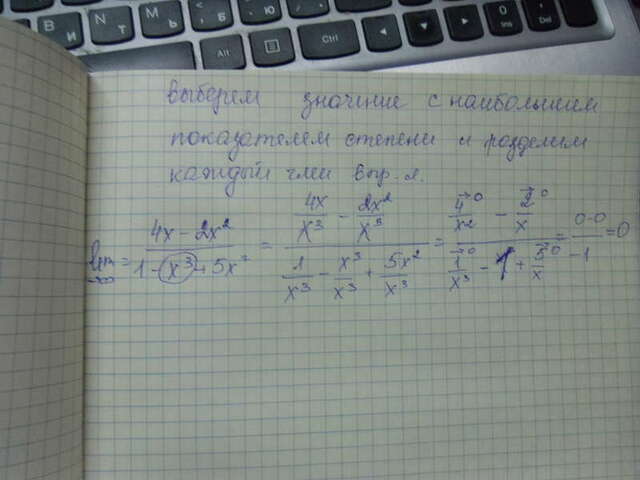 И N Т М Ь Б Ю
Alt Ctrl 0 Ins Del
выберем значение с наибольшим
показателем степени и разделим
каждый член выр-я.
lim x→∞ = (4x - 2x²)/(1 - x³ + 5x²) = (4x/x³ - 2x²/x³)/(1/x³ - x³/x³ + 5x²/x³) = (4/x² →0 - 2/x →0)/(1/x³ →0 - 1 + 5/x →0) = (0-0)/(-1) = 0